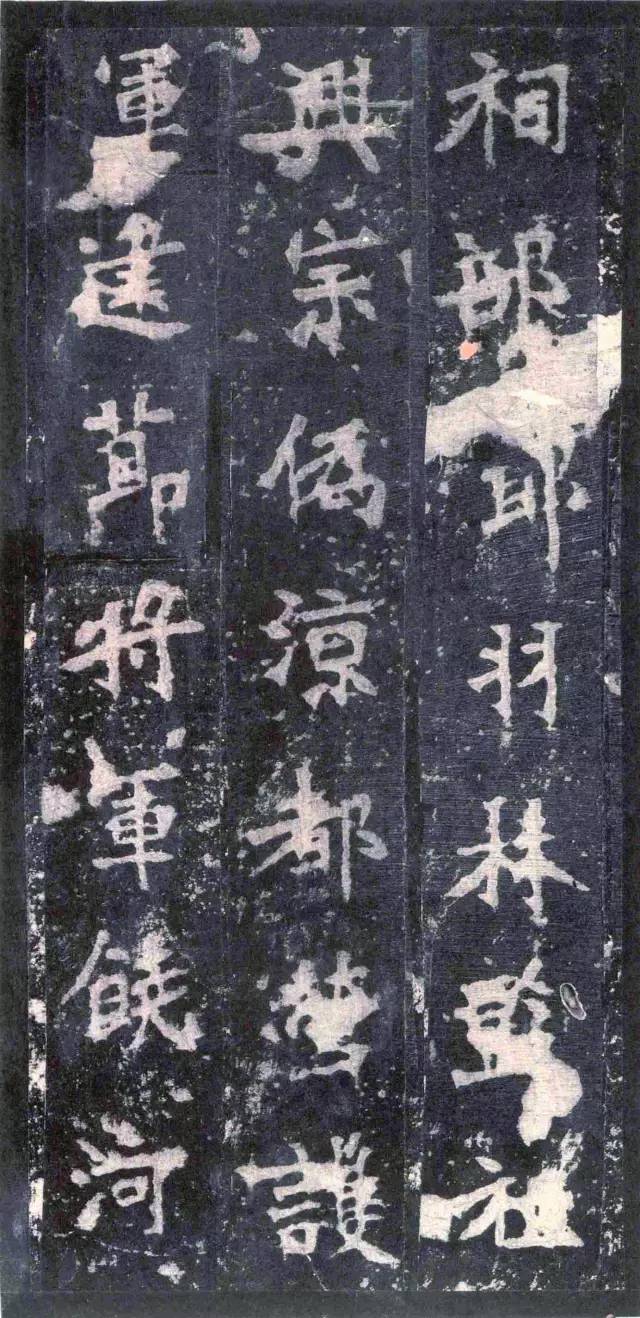 祠部郎羽林監祖
興宗偽涼都營護
軍建節將軍饒河